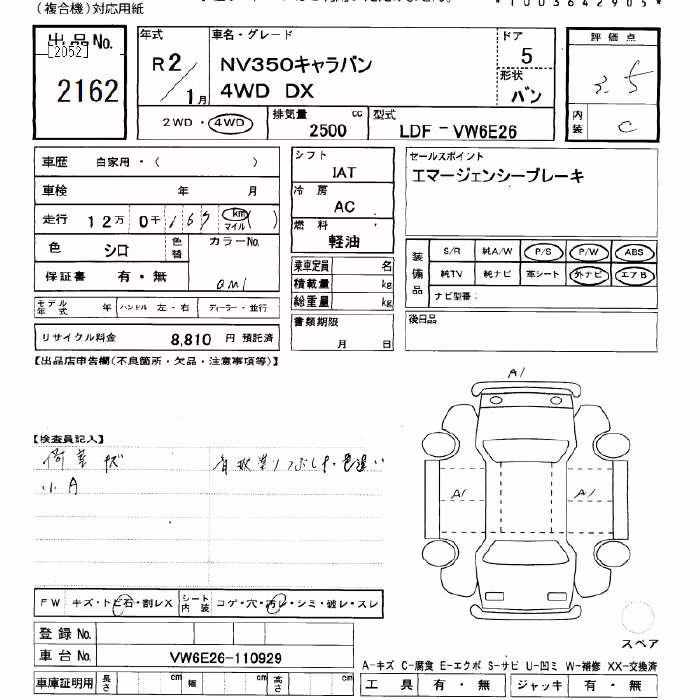 (複合機)対応用紙
*1003642905*
出品No. [2052] 2162
年式 車名・グレード ドア 評価点
R2/1月 NV350キャラバン 5 3.5
4WD DX 形状 バン
2WD・4WD 排気量 cc 2500 型式 LDF-VW6E26 内装 C
車歴 自家用・( )
シフト IAT
セールスポイント
エマージェンシーブレーキ
車検 年 月
冷房 AC
走行 12万0千169 km マイル ( )
燃料 軽油
色 シロ 色替 カラーNo. QM1
装備品 S/R 純A/W P/S P/W ABS
乗車定員 名
保証書 有・無
積載量 kg
純TV 純ナビ 革シート 外ナビ エアB
総重量 kg
ナビ型番:
モデル年式 年 ハンドル 左・右 ディーラー・並行
書類期限 月 日
後日品
リサイクル料金 8,810 円 預託済
【出品店申告欄(不良箇所・欠品・注意事項等)】
A1
【検査員記入】
荷室キズ
小A
A1 A1
FW キズ・トビ石・割レX シート内装 コゲ・穴・汚レ・シミ・破レ・スレ
登録No.
スペア
車台No. VW6E26-110929
A-キズ C-腐食 E-エクボ S-サビ U-凹ミ W-補修 XX-交換済
車庫証明用 長さ cm 幅 cm 高さ cm
工具 有・無 ジャッキ 有・無